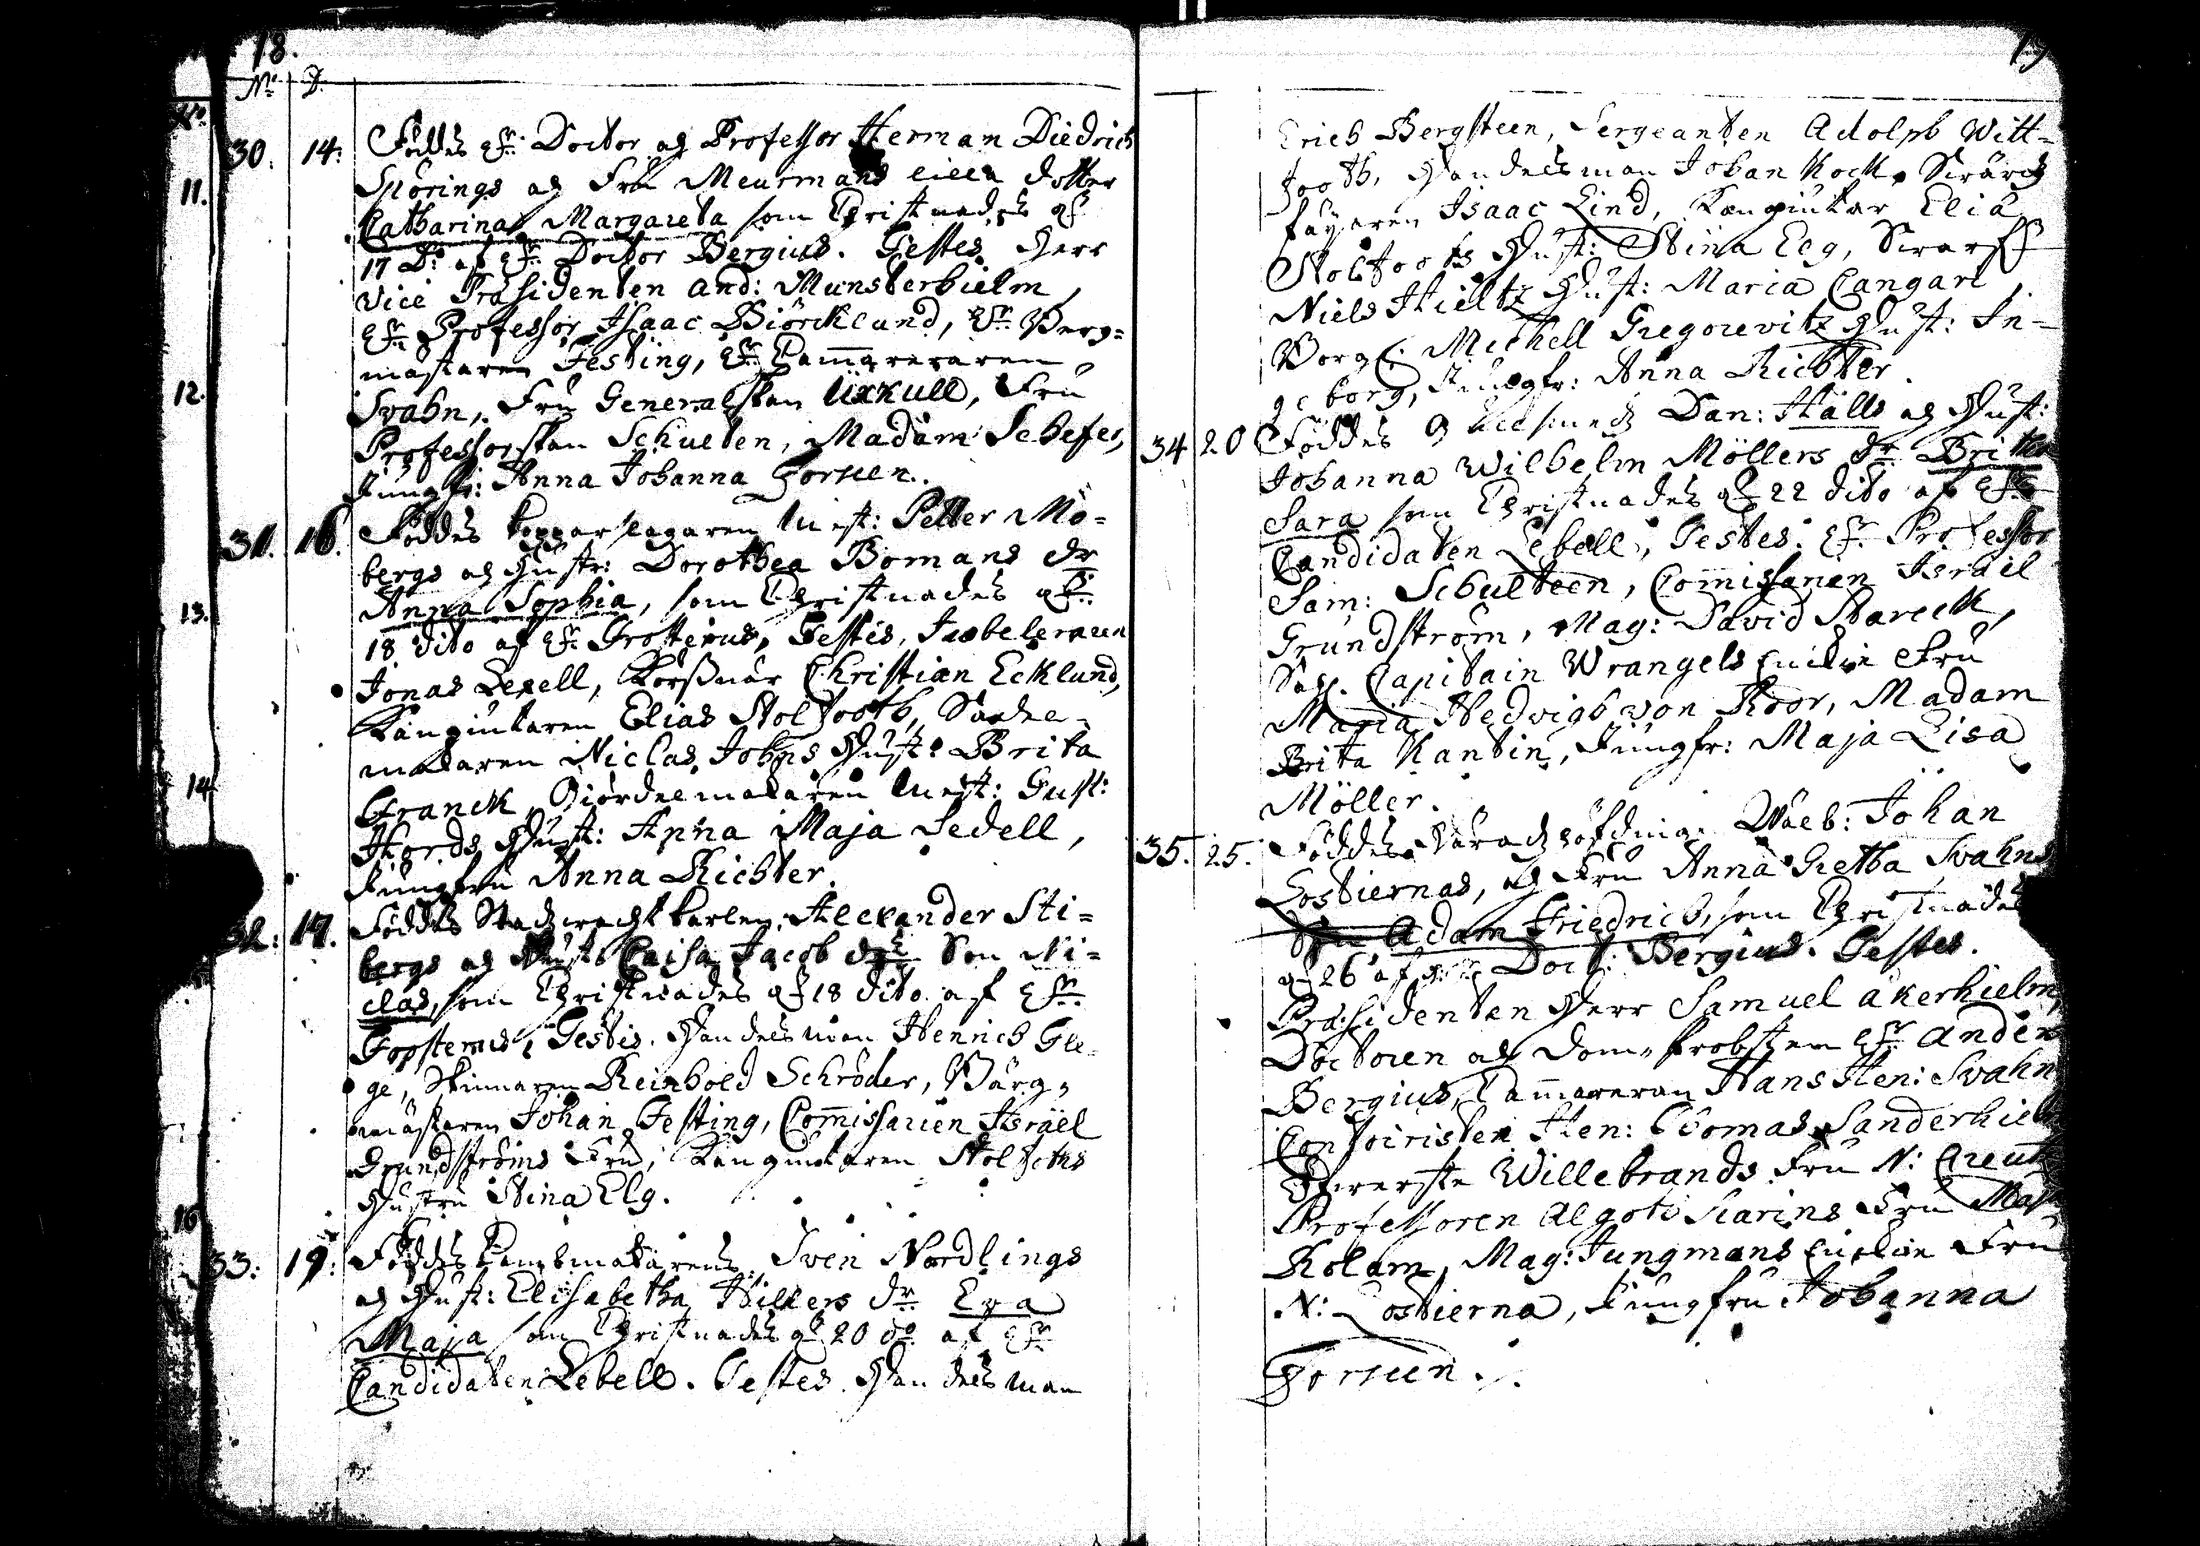 18.
No D.
No
30. 14. Föddes Hr Doctor och Professor Herman Diedrich
Spörings och Fru Meurmans lilla dotter
11.
Catharina Margareta som Christnades d.
17 D: af Hr Doctor Bergius. Testes Herr
Vice Præsidenten And: Munsterhielm,
Hr Professor Isaac Biörcklund, Hr Borg=
mästaren Festing, Hr Camereraren
12.
Svahn, Fru Generalskan Üxkull, Fru
Professorskan Schulten, Madam Schefer,
Jungfr: Anna Johanna Forteen.
31. 16. Föddes Kopparslagaren Mest: Petter Mö=
bergs och Hustr: Dorothea Bomans dr
Anna Sophia, som Christnades d.
13.
18 dito af Hr Grotterus, Testes, Juveleraren
Jonas Lexell, Körssnär Christian Ecklund,
Kangiutaren Elias Stolfooth, Sadel=
makaren Niclas Johns Hust: Brita
14.
Granck, Giördelmakaren Mest: Gust:
Hords Hust: Anna Maja Sedell,
Jungfru Anna Richter.
32: 17. Föddes Stadzwacht Karlen Alexander Sti=
bergs och Hust: Caisa Jacob dr Son Ni=
clas, som Christnades d. 18 dito af Hr
Testis. Handelsman Henrich Gle=
ge, Skinnaren Reinhold Schröder, Borg=
mästaren Johan Festing, Comissarien Israël
Grundströms Fru, Kangiutaren Stolfoths
Hustru Stina Elg.
16
33: 19: Föddes Kambmakarens Sven Nordlings
och Hust: Elisabetha Hillers dr Eva
Maja som Christnades d. 20 do af Hr
Candidaten Lebell. Testes. Handelsman
19
Erich Bergsteen, Sergeanten Adolph Witt=
footh, Handelsman Johan Kock, Svärd
fäjaren Isaac Lind, Kangiutar Elia
Stolfooths Hust: Stina Elg, Svarf
Niels Hieltz Hust: Maria Cangarl,
Borg: Michell Gregorevitz Hust: In=
geborg, Jungfr: Anna Richter.
34 20 Föddes Guldsmed Dan: Hälls och Hust:
Johanna Wilhelm Möllers dr Brita
Sara som Christnades d. 22 dito af Hr
Candidaten Lebell, Testes: Hr Professor
Sam: Schulteen, Comissarien Israil
Grundström, Mag: David Starck,
Sal. Capitain Wrangels Enckie Fru
Maria Hedvigh von Roor, Madam
Brita Kantin, Jungfr: Maja Lisa
Möller.
35. 25. Föddes Häradzhöfding. Wäeb: Johan
Lostiernas, och Fru Anna Gretha Svahns
Son Adam Friedrich, som Christnades
d. 26 af Doct: Bergius. Testes.
Præsidenten Herr Samuel Åkerhielm,
Doctoren och Dom=Probsten Hr Anders
Bergius, Cammereran Hans Hen: Svahn
Contoiristen Hen: Thomas Sanderhielm
Öfverste Willebrands Fru N: Creutz
Professoren Algoth Scarins Fru Maja
Kolam, Mag: Jungmans Enckie Fru
N: Lostierna, Jungfru Johanna
Forteen.